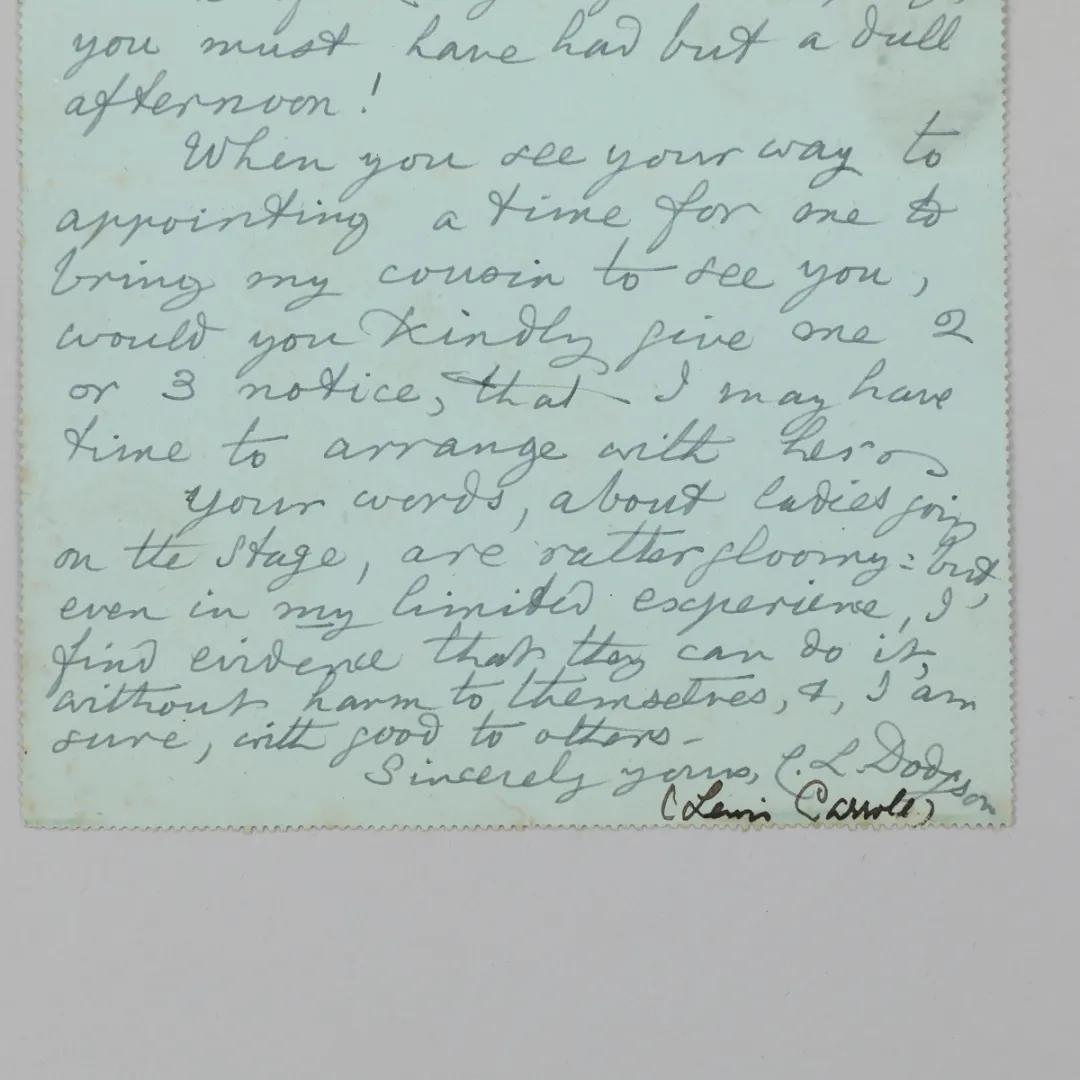 you must have had but a dull
afternoon!
When you see your way to
appointing a time for me to
bring my cousin to see you,
would you kindly give me 2
or 3 notice, that I may have
time to arrange with her.
Your words, about ladies going
on the stage, are rather gloomy: but,
even in my limited experience, I
find evidence that they can do it,
without harm to themselves, &, I am
sure, with good to others.
Sincerely yours, C. L. Dodgson
(Lewis Carroll)